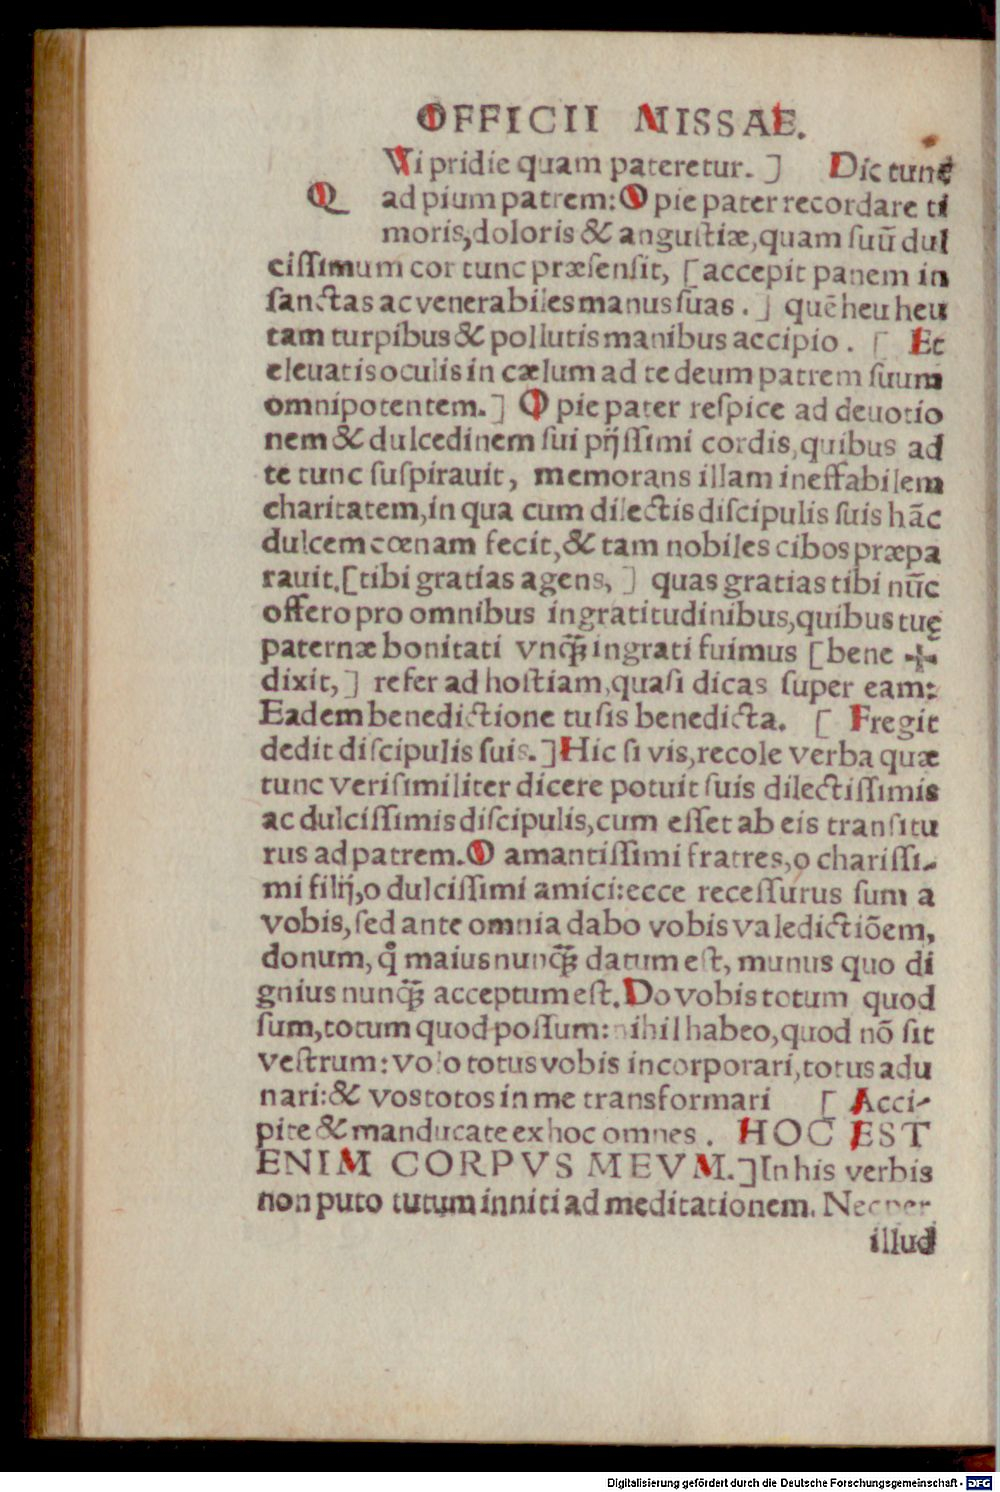 OFFICII MISSAE.
Vi pridie quam pateretur. ] Dic tunc
Q ad pium patrem: O pie pater recordare ti
moris, doloris & angustiæ, quam suũ dul
cissimum cor tunc præsensit, [accepit panem in
sanctas ac venerabiles manus suas. ] quẽ heu heu
tam turpibus & pollutis manibus accipio. [ Et
eleuatis oculis in cælum ad te deum patrem suum
omnipotentem. ] O pie pater respice ad deuotio
nem & dulcedinem sui pijssimi cordis, quibus ad
te tunc suspirauit, memorans illam ineffabilem
charitatem, in qua cum dilectis discipulis suis hãc
dulcem cœnam fecit, & tam nobiles cibos præpa
rauit. [tibi gratias agens, ] quas gratias tibi nũc
offero pro omnibus ingratitudinibus, quibus tuę
paternæ bonitati vnq̃ꝫ ingrati fuimus [bene ✠
dixit, ] refer ad hostiam, quasi dicas super eam:
Eadem benedictione tu sis benedicta. [ Fregit
dedit discipulis suis. ] Hic si vis, recole verba quæ
tunc verisimiliter dicere potuit suis dilectissimis
ac dulcissimis discipulis, cum esset ab eis transitu
rus ad patrem. O amantissimi fratres, o charissi-
mi filij, o dulcissimi amici: ecce recessurus sum a
vobis, sed ante omnia dabo vobis valedictiõem,
donum, qͦ maius nunq̃ꝫ datum est, munus quo di
gnius nunq̃ꝫ acceptum est. Do vobis totum quod
sum, totum quod possum: nihil habeo, quod nõ sit
vestrum: volo totus vobis incorporari, totus adu
nari: & vos totos in me transformari [ Acci-
pite & manducate ex hoc omnes. HOC EST
ENIM CORPVS MEVM. ] In his verbis
non puto tutum inniti ad meditationem. Nec per
illud
Digitalisierung gefördert durch die Deutsche Forschungsgemeinschaft - DFG